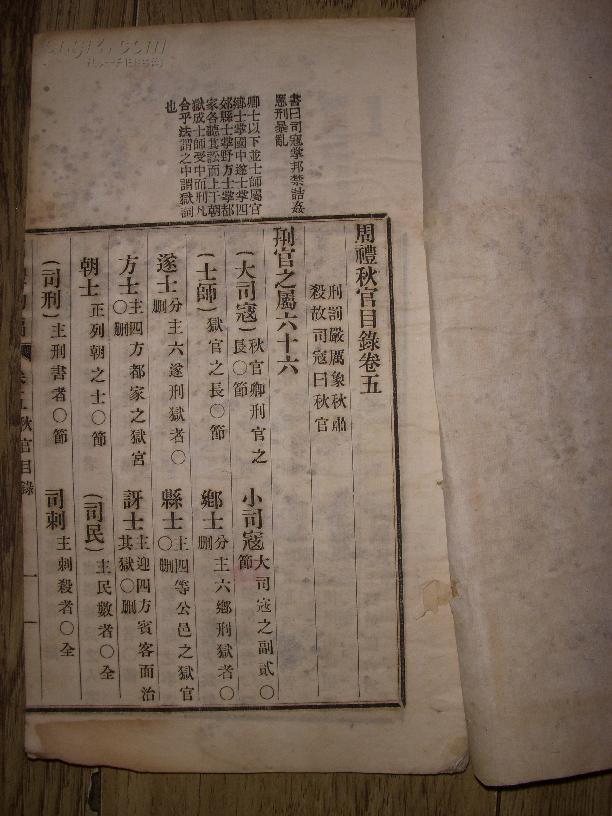 書曰司寇掌邦禁詰姦
慝刑暴亂
卿士以下並士師屬官
鄉士掌國中遂士掌四
郊縣士掌野方士掌都
家各聽其訟而上于朝
獄成士師受中而刑凡
合乎法謂之中謂獄詞
也
周禮秋官目錄卷五
刑罰嚴厲象秋肅
殺故司寇曰秋官
刑官之屬六十六
(大司寇)秋官卿刑官之
長〇節
小司寇大司寇之副貳〇
節
(士師)獄官之長〇節
鄉士分主六鄉刑獄者〇
刪
遂士分主六遂刑獄者〇
刪
縣士主四等公邑之獄官
〇刪
方士主四方都家之獄官
〇刪
訝士主迎四方賓客而治
其獄〇刪
朝士正列朝之士〇節
(司民)主民數者〇全
(司刑)主刑書者〇節
司刺主刺殺者〇全
秋官目錄
一